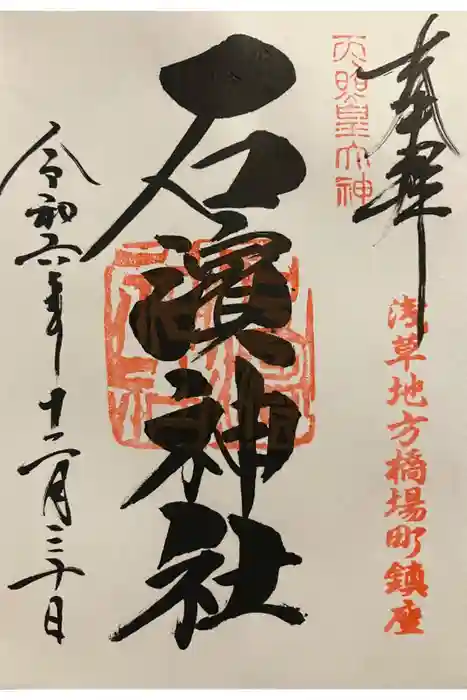 奉拝
天照皇大神
浅草地方橋場町鎮座
石濱神社
令和六年十二月三十日